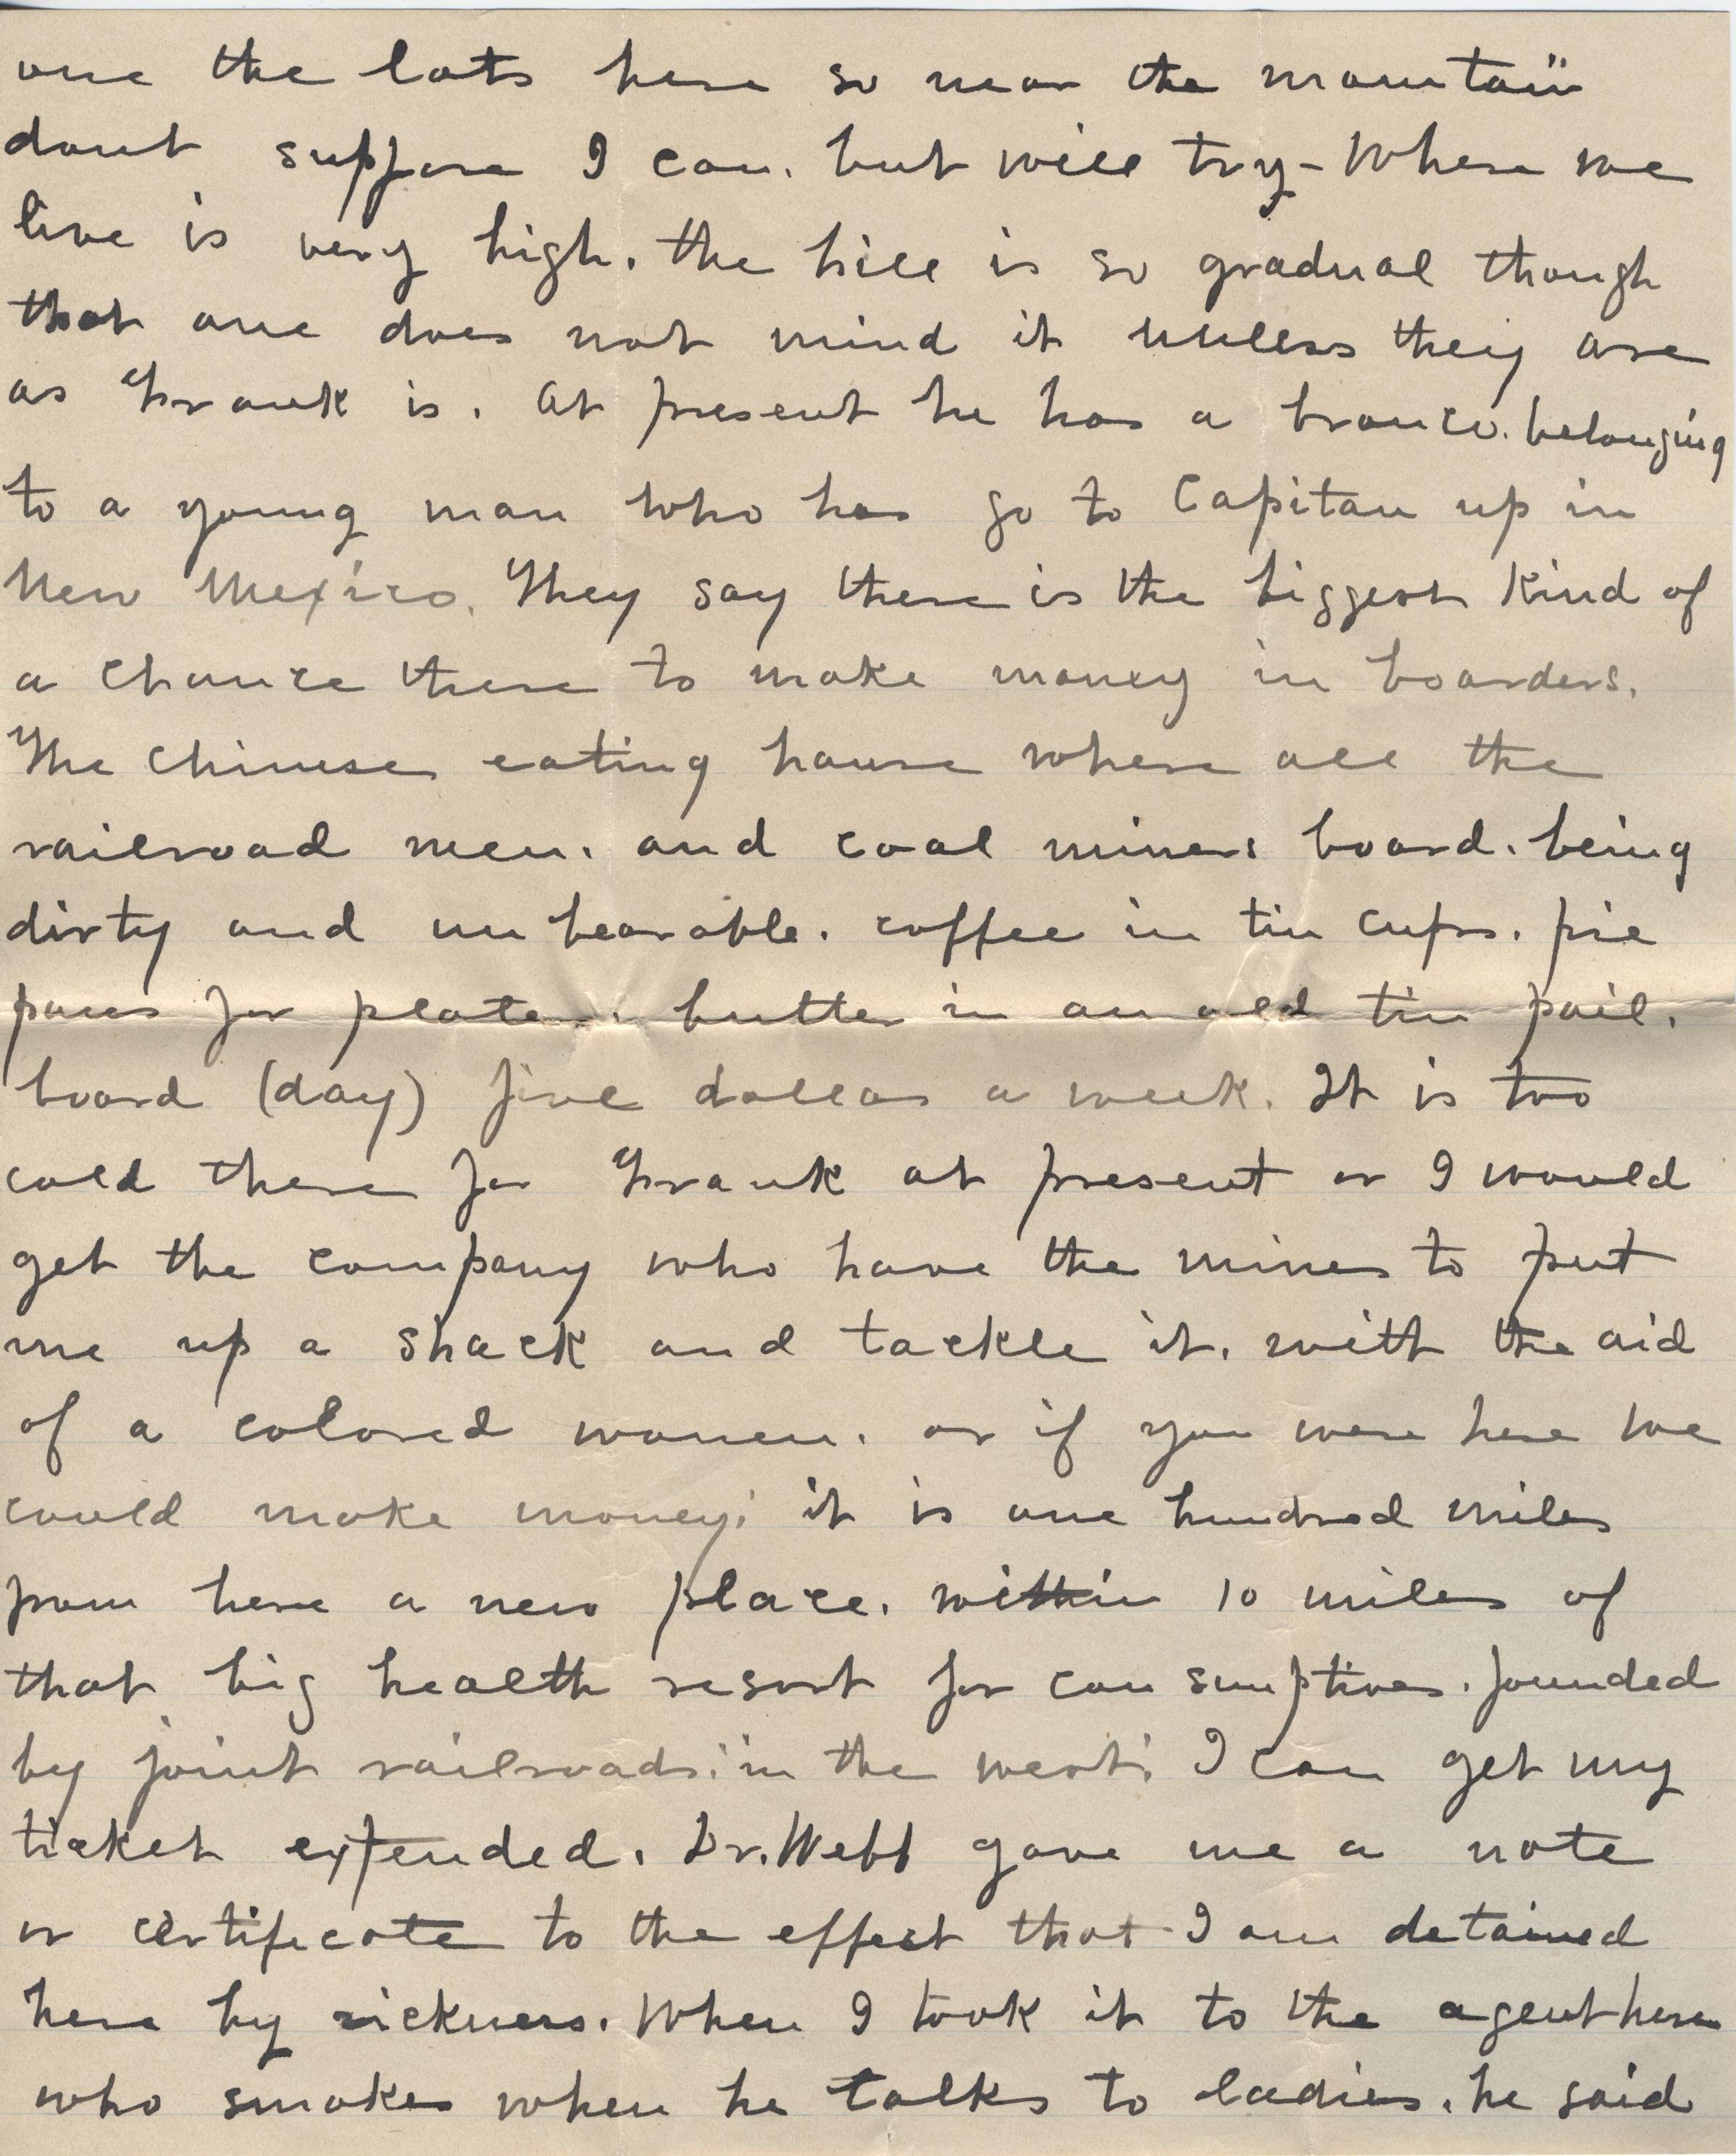 one the lots here so near the mountain
dont suppose I can. but will try - Where we
live is very high. the hill is so gradual though
that one does not mind it unless they are
as Frank is. At present he has a bronco. belonging
to a young man who has go to Capitan up in
New Mexico. They say there is the biggest kind of
a chance there to make money in boarders.
The Chinese eating house where all the
railroad men. and coal miners board. being
dirty and unbearable. coffee in tin cups. pie
pans for plates. butter in an old tin pail.
board (day) five dollars a week. It is too
cold there for Frank at present or I would
get the company who have the mines to put
me up a shack and tackle it. with the aid
of a colored women. or if you were here we
could make money. it is one hundred miles
from here a new place. within 10 miles of
that big health resort for consumptives. founded
by joint railroads. in the west. I can get my
ticket extended. Dr. Webb gave me a note
or certificate to the effect that I am detained
here by sickness. When I took it to the agent here
who smokes when he talks to ladies. he said